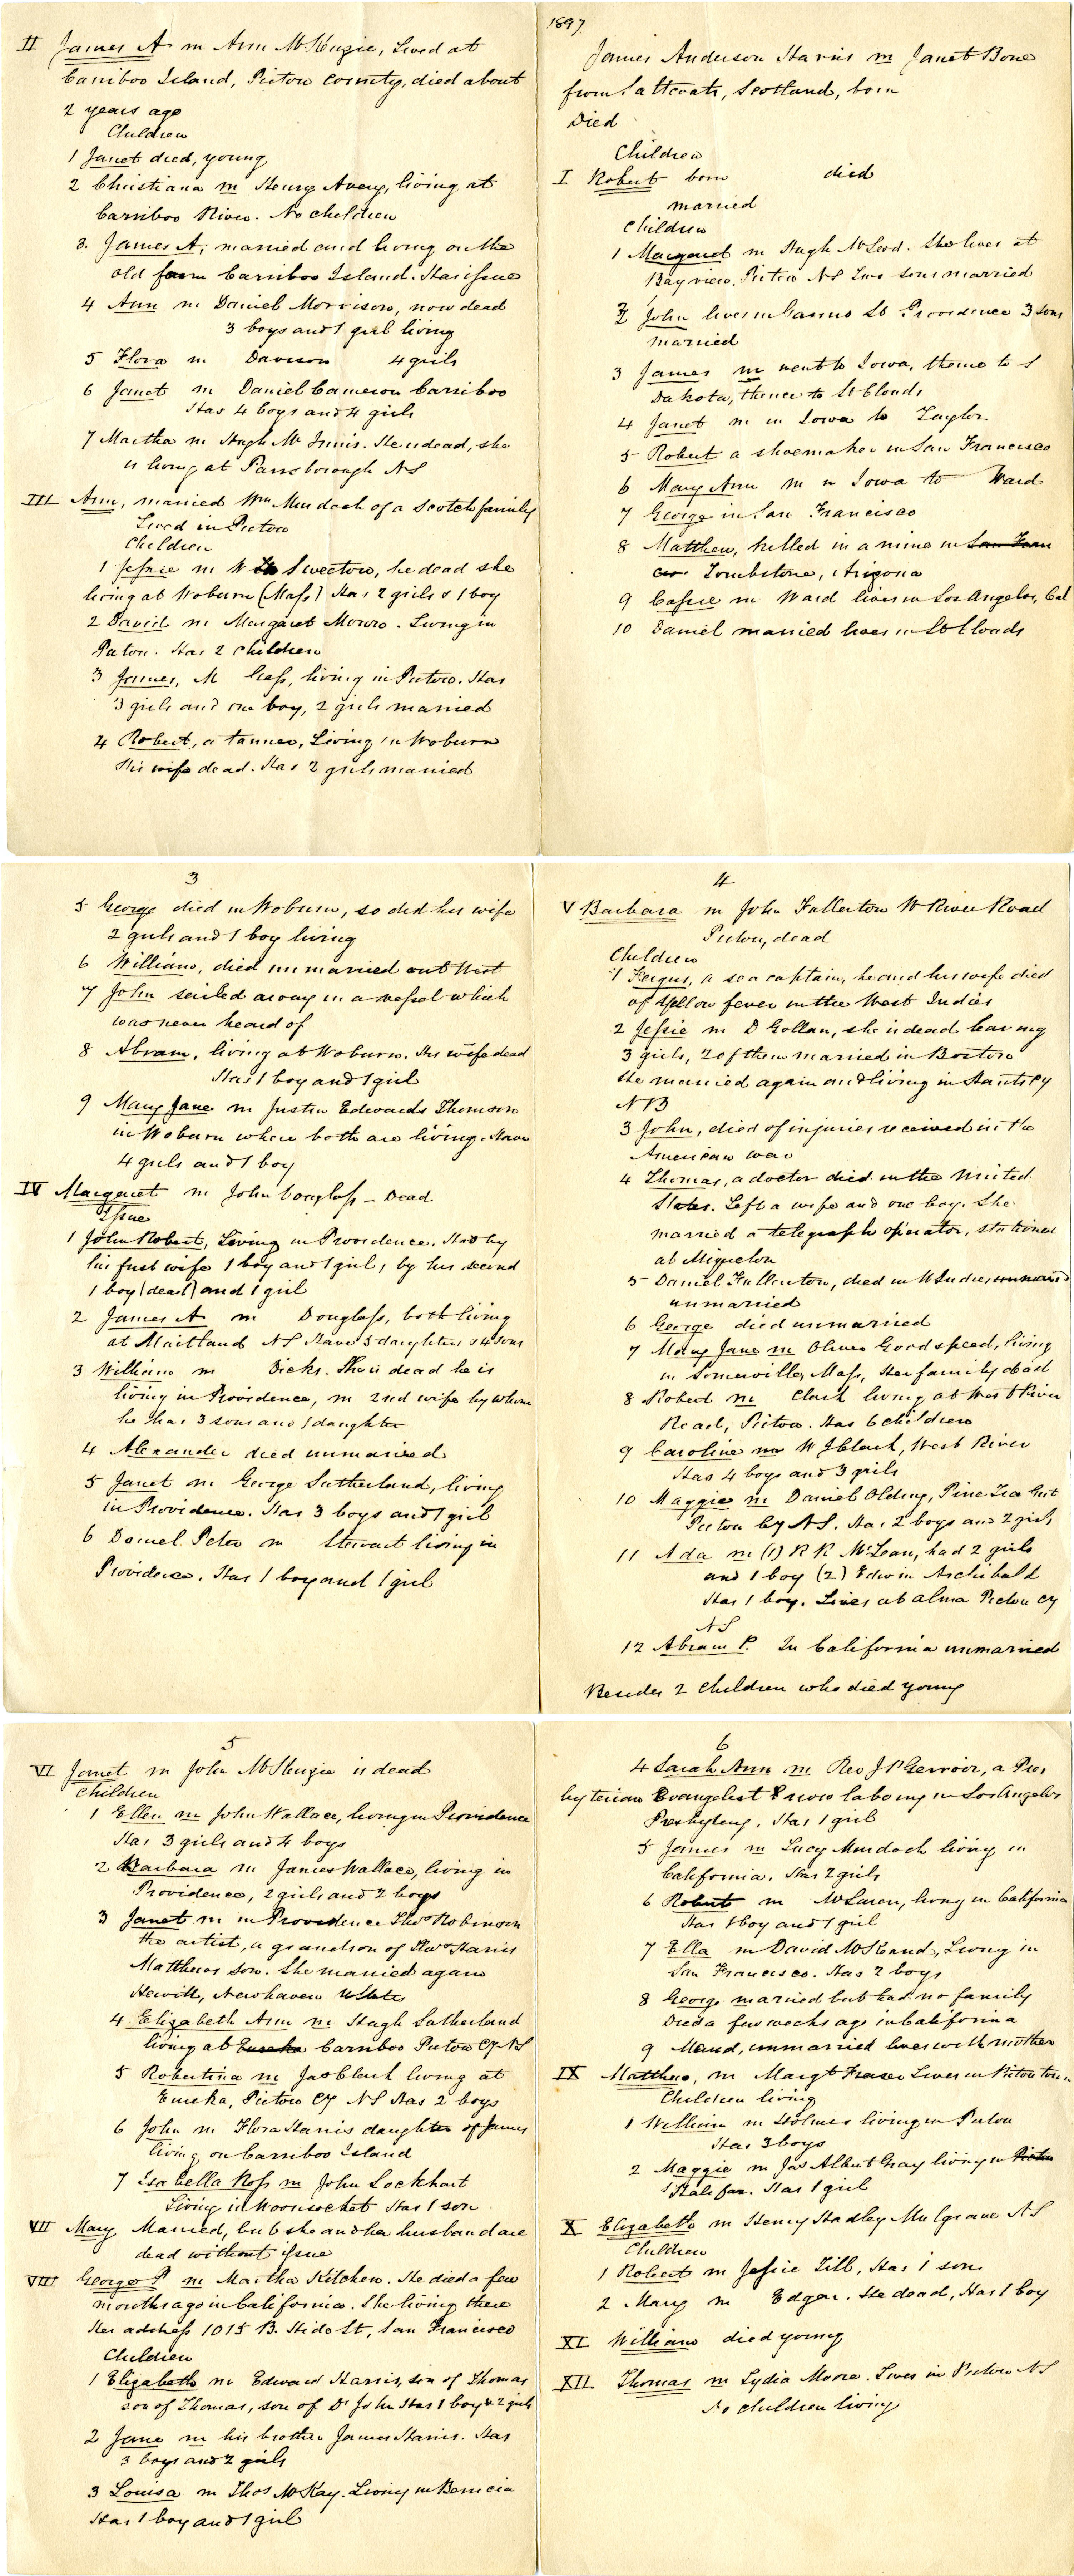 1897
James Anderson Harris m Janet Bone
from Scotland, born
Died
Children
I Robert born died
married
Children
1 Margaret m Hugh McLeod. She lives at
Bayview, Pictou NS Two sons married
2 John lives in St Providence 3 sons
married
3 James m went to Iowa, thence to S
Dakota, thence to St Clouds
4 Janet m in Iowa to Taylor
5 Robert a shoemaker in San Francisco
6 Mary Ann m in Iowa to Ward
7 George in San Francisco
8 Matthew, killed in a mine in San Fran
cis Tombstone, Arizona
9 Cassie m Ward lives in Los Angeles, Cal
10 Daniel married lives in St Clouds
II James A m Ann McKenzie, Lived at
Carriboo Island, Pictou County, died about
2 years ago
Children
1 Janet died, young
2 Christiana m Henry Avery, living at
Carriboo River. No children
3. James A, married and living on the
old farm Carriboo Island. Has issue
4 Ann m Daniel Morrison, now dead
3 boys and 1 girl living
5 Flora m Davison 4 girls
6 Janet m Daniel Cameron Carriboo
Has 4 boys and 4 girls
7 Martha m Hugh McInnis. He is dead, she
is living at Parrsborough NS
III Ann, married Wm Murdoch of a Scotch family
Lived in Pictou
Children
1 Jessie m W Sweeton, he dead she
living at Woburn (Mass) Has 2 girls & 1 boy
2 David m Margaret Monro. Living in
Pictou. Has 2 children
3 James, M Cass, living in Pictou. Has
3 girls and one boy, 2 girls married
4 Robert, a tanner, Living in Woburn
His wife dead. Has 2 girls married
3
5 George died in Woburn, so did his wife
2 girls and 1 boy living
6 William, died unmarried out West
7 John sailed away in a vessel which
was never heard of
8 Abram, living at Woburn. His wife dead
Has 1 boy and 1 girl
9 Mary Jane m Justin Edwards Thomson
in Woburn where both are living. Have
4 girls and 1 boy
IV Margaret m John Douglass - Dead
Issue
1 John Robert, Living in Providence. Had by
his first wife 1 boy and 1 girl, by his second
1 boy (dead) and 1 girl
2 James A m Douglass, both living
at Maitland NS Have 3 daughters & 4 sons
3 William m Dicks. She is dead he is
living in Providence, m 2nd wife by whom
he has 3 sons and 1 daughter
4 Alexander died unmarried
5 Janet m George Sutherland, living
in Providence. Has 3 boys and 1 girl
6 Daniel Peter m Stewart living in
Providence. Has 1 boy and 1 girl
4
V Barbara m John Fullerton W River Road
Pictou, dead
Children
1 Fergus, a sea captain, he and his wife died
of Yellow fever in the West Indies
2 Jessie m D Gollan, she is dead leaving
3 girls, 2 of them married in Boston
He married again and living in
NB
3 John, died of injuries received in the
American war
4 Thomas, a doctor died in the United
States. Left a wife and one boy. She
married a telegraph operator, stationed
at Miquelon
5 Daniel Fullerton, died in W Indies unmarri
unmarried
6 George died unmarried
7 Mary Jane m Oliver Goodspeed, living
in Somerville, Mass, Her family dead
8 Robert m Clark living at West River
Road, Pictou. Has 6 children
9 Caroline m W J Clark, West River
Has 4 boys and 3 girls
10 Maggie m Daniel Olding, Pine Tree Gut
Pictou Cy NS. Has 2 boys and 2 girls
11 Ada m (1) R R McLean, had 2 girls
and 1 boy (2) Edwin Archibald
Has 1 boy. Lives at Alma Pictou Cy
NS
12 Abram P. In California unmarried
Besides 2 children who died young
5
VI Janet m John McKenzie is dead
Children
1 Ellen m John Wallace, living in Providence
Has 3 girls and 4 boys
2 Barbara m James Wallace, living in
Providence, 2 girls and 2 boys
3 Janet m in Providence Thos Robinson
the artist, a grandson of Thos Harris
Matthews son. She married again
Hewitt, Newhaven U States
4 Elizabeth Ann m Hugh Sutherland
living at Eureka Carriboo Pictou Cy NS
5 Robertina m Jas Clark living at
Eureka, Pictou Cy NS Has 2 boys
6 John m Flora Harris daughter of James
living on Carriboo Island
7 Isabella Ross m John Lockhart
Living in Woonsocket Has 1 son
VII Mary Married, but she and her husband are
dead without issue
VIII George P m Martha Kitchen. He died a few
months ago in California. She living there
Her address 1015 B. Hide St, San Francisco
Children
1 Elizabeth m Edward Harris, son of Thomas
son of Thomas, son of Dr John Has 1 boy & 2 girls
2 Jane m his brother James Harris. Has
3 boys and 2 girls
3 Louisa m Thos McKay. Living in Benicia
Has 1 boy and 1 girl
6
4 Sarah Ann m Rev J P Gerrior, a Pres
byterian Evangelist & now laboring in Los Angeles
Presbytery. Has 1 girl
5 James m Lucy Murdoch living in
California. Has 2 girls
6 Robert m McLaren, living in California
Has 1 boy and 1 girl
7 Ella m David McKeand, Living in
San Francisco. Has 2 boys
8 George married but had no family
Died a few weeks ago in California
9 Maud, unmarried lives with mother
IX Matthew, m Margt Fraser Lives in Pictou town
Children living
1 William m Holmes living in Pictou
Has 3 boys
2 Maggie m Jas Albert Gray living in Pictou
Halifax. Has 1 girl
X Elizabeth m Henry Hadley Mulgrave NS
Children
1 Robert m Jessie Till, Has 1 son
2 Mary m Edgar. He dead, Has 1 boy
XI William died young
XII Thomas m Lydia Moore. Lives in Pictou NS
No children living